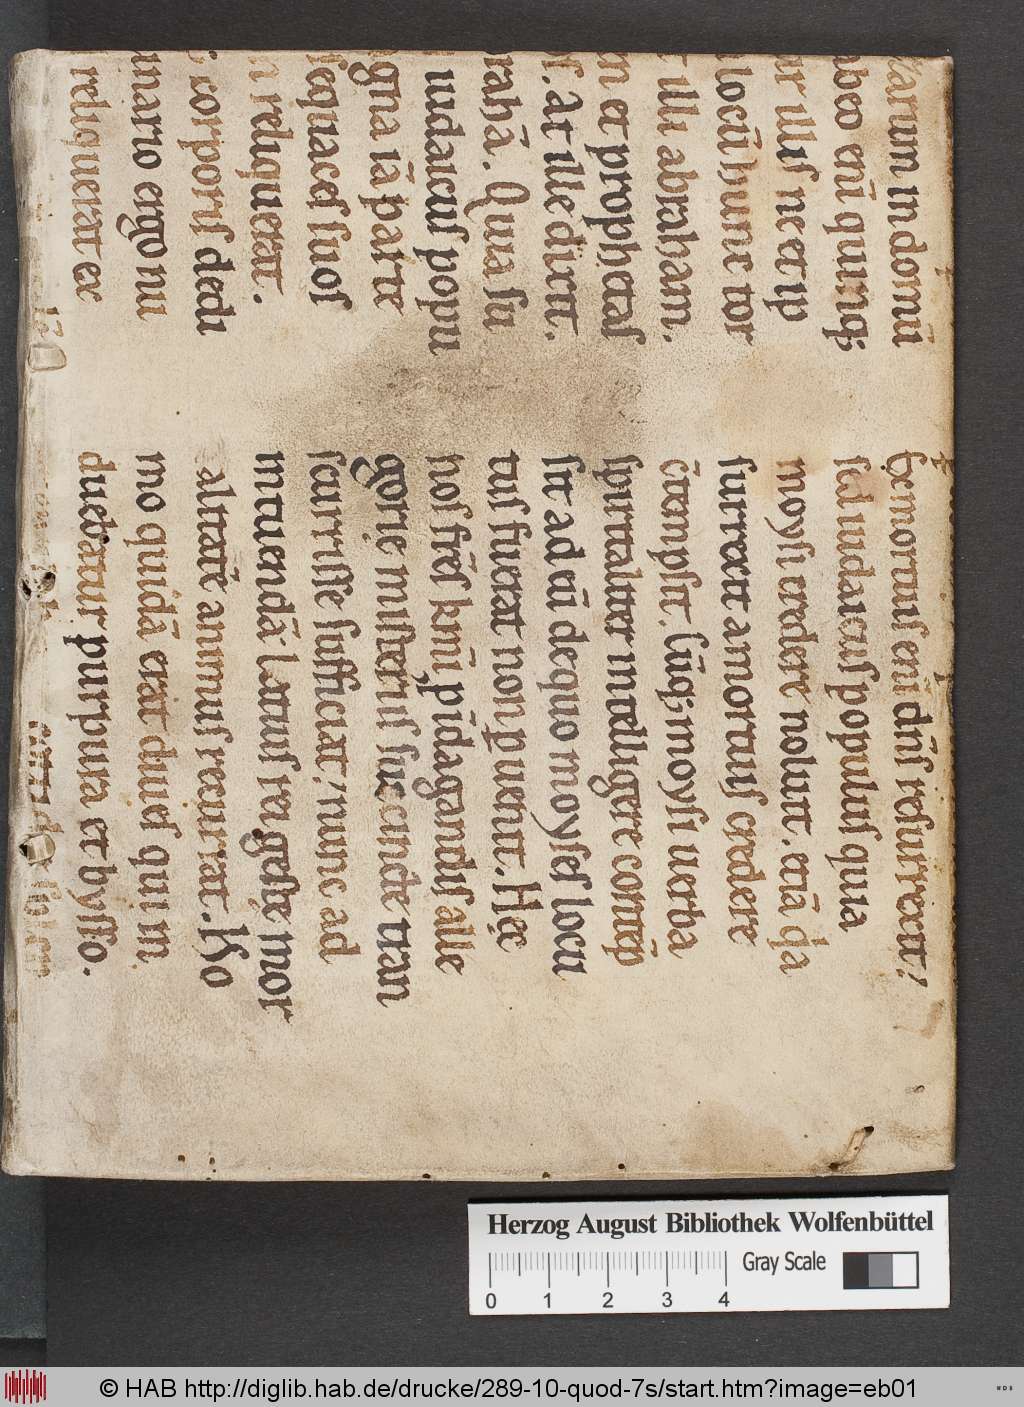 arum in domū
beo enī quinq;
ur illis ne et ip
locū hunc tor
t illi abraham.
n et prophetas
s. At ille dixit.
rahā. Qua su
iudaicus popu
gna iā parte
sequaces suos
n reliquerat.
corporis dedi
nario ergo nu
reliquerat ex
mortuis enī dn̄s resurrexit;
sed iudaicus populus quia
moysi credere noluit. etiā
surrexit a mortuis credere
cōtempsit. Cūq; moysi uerba
spiritaliter intellegere contēp
sit ad eū de quo moyses locu
tus fuerat non puenit. Hęc
nos fr̄es km̄i p̄ idagandis alle
gorię misteriis succincte tran
scurrisse sufficiat; nunc ad
intuendā latius rei gestę mor
alitatē animus recurrat. Ho
mo quidā erat diues qui in
duebatur purpura et bysso.
Herzog August Bibliothek Wolfenbüttel
Gray Scale
0 1 2 3 4
© HAB http://diglib.hab.de/drucke/289-10-quod-7s/start.htm?image=eb01